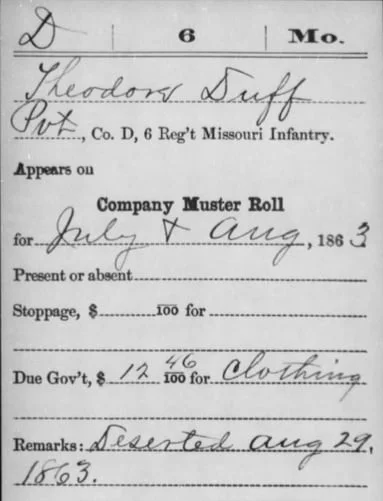 D | 6 | Mo.
Theodore Duff
Pvt, Co. D, 6 Reg't Missouri Infantry.
Appears on
Company Muster Roll
for July & Aug, 1863
Present or absent
Stoppage, $ 100 for
Due Gov't, $ 12 46/100 for Clothing
Remarks: Deserted Aug 29,
1863.